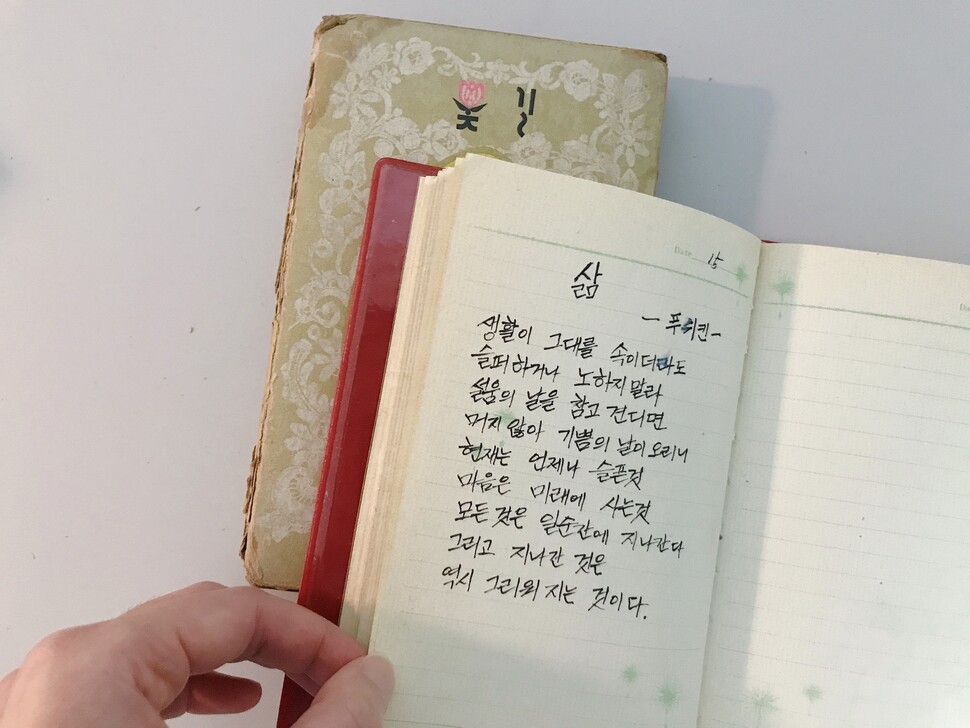 꽃 길
Date 15
삶
- 푸쉬킨 -
생활이 그대를 속이더라도
슬퍼하거나 노하지 말라
설움의 날을 참고 견디면
머지 않아 기쁨의 날이 오리니
현재는 언제나 슬픈것
마음은 미래에 사는것
모든 것은 일순간에 지나간다
그리고 지나간 것은
역시 그리워 지는 것이다.